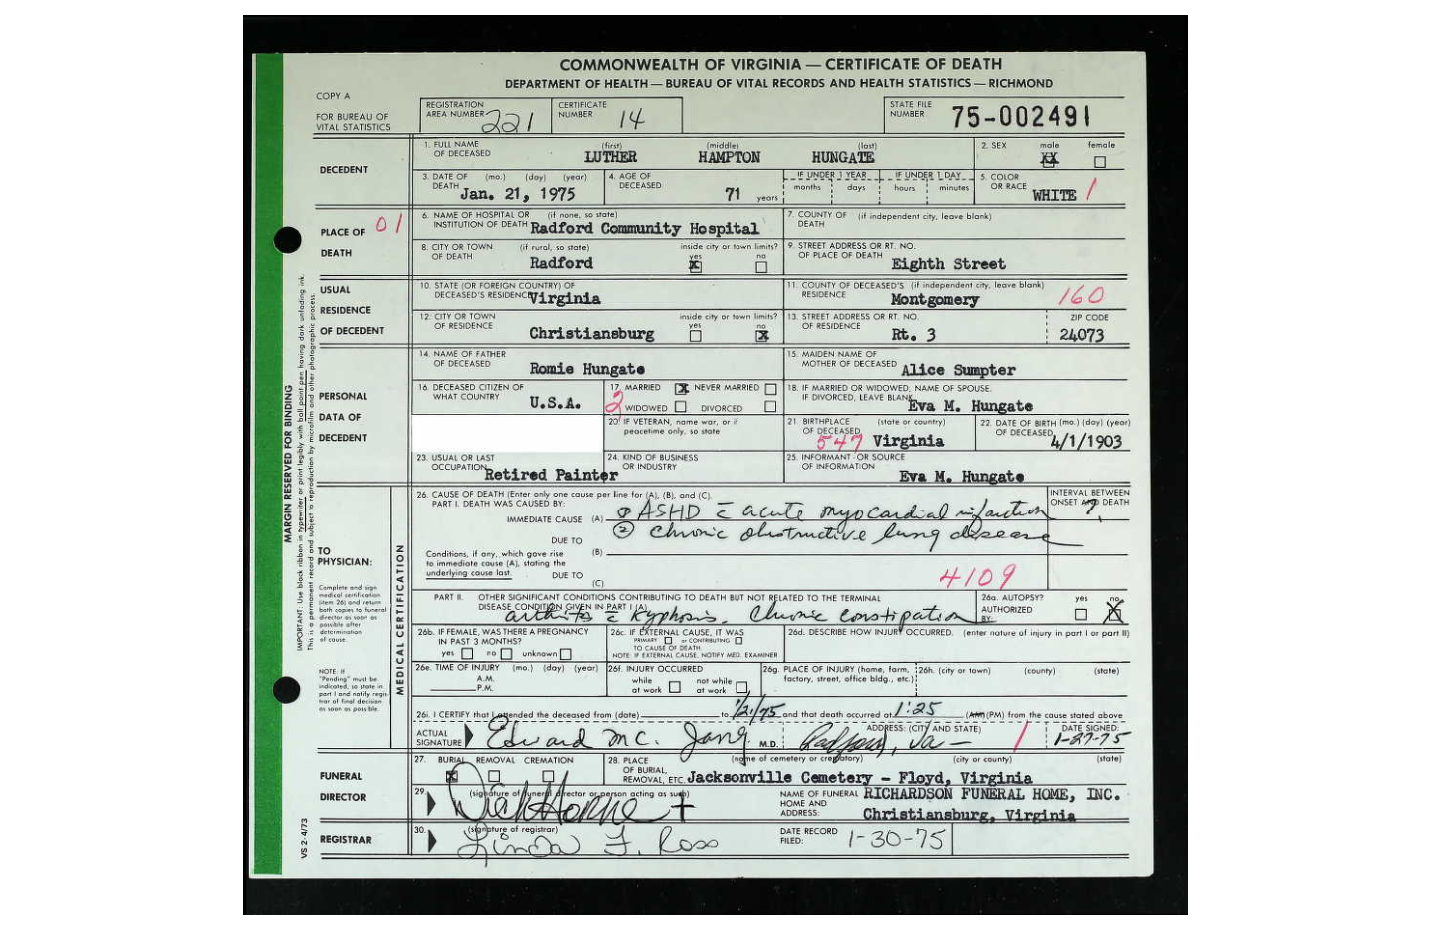 COMMONWEALTH OF VIRGINIA — CERTIFICATE OF DEATH
DEPARTMENT OF HEALTH — BUREAU OF VITAL RECORDS AND HEALTH STATISTICS — RICHMOND
COPY A
FOR BUREAU OF VITAL STATISTICS
REGISTRATION AREA NUMBER 221
CERTIFICATE NUMBER 14
STATE FILE NUMBER 75-002491
DECEDENT
1. FULL NAME OF DECEASED (first) LUTHER (middle) HAMPTON (last) HUNGATE
2. SEX male XX female
3. DATE OF DEATH (mo.) (day) (year) Jan. 21, 1975
4. AGE OF DECEASED 71 years
IF UNDER 1 YEAR months days
IF UNDER 1 DAY hours minutes
5. COLOR OR RACE WHITE 1
PLACE OF DEATH 01
6. NAME OF HOSPITAL OR INSTITUTION OF DEATH (if none, so state) Radford Community Hospital
7. COUNTY OF DEATH (if independent city, leave blank)
8. CITY OR TOWN OF DEATH (if rural, so state) Radford
inside city or town limits? yes X no
9. STREET ADDRESS OR RT. NO. OF PLACE OF DEATH Eighth Street
USUAL RESIDENCE OF DECEDENT
10. STATE (OR FOREIGN COUNTRY) OF DECEASED'S RESIDENCE Virginia
11. COUNTY OF DECEASED'S RESIDENCE (if independent city, leave blank) Montgomery 160
12. CITY OR TOWN OF RESIDENCE Christiansburg
inside city or town limits? yes no X
13. STREET ADDRESS OR RT. NO. OF RESIDENCE Rt. 3
ZIP CODE 24073
PERSONAL DATA OF DECEDENT
14. NAME OF FATHER OF DECEASED Romie Hungate
15. MAIDEN NAME OF MOTHER OF DECEASED Alice Sumpter
16. DECEASED CITIZEN OF WHAT COUNTRY U.S.A.
17. MARRIED X NEVER MARRIED
2 WIDOWED DIVORCED
18. IF MARRIED OR WIDOWED, NAME OF SPOUSE. IF DIVORCED, LEAVE BLANK Eva M. Hungate
20. IF VETERAN, name war, or if peacetime only, so state
21. BIRTHPLACE OF DECEASED (state or country) 547 Virginia
22. DATE OF BIRTH OF DECEASED (mo.) (day) (year) 4/1/1903
23. USUAL OR LAST OCCUPATION Retired Painter
24. KIND OF BUSINESS OR INDUSTRY
25. INFORMANT OR SOURCE OF INFORMATION Eva M. Hungate
MARGIN RESERVED FOR BINDING
IMPORTANT: Use black ribbon in typewriter or print legibly with ball point pen having dark unfading ink.
This is a permanent record and subject to reproduction by microfilm and other photographic process.
TO PHYSICIAN:
Complete and sign medical certification (item 26) and return both copies to funeral director as soon as possible after determination of cause.
NOTE: If "Pending" must be indicated, so state in part I and notify registrar of final decision as soon as possible.
MEDICAL CERTIFICATION
26. CAUSE OF DEATH (Enter only one cause per line for (A), (B), and (C).
PART I. DEATH WAS CAUSED BY:
INTERVAL BETWEEN ONSET AND DEATH ?
IMMEDIATE CAUSE (A) ① ASHD c̄ acute myocardial infarction
DUE TO ② Chronic obstructive lung disease
Conditions, if any, which gave rise to immediate cause (A), stating the underlying cause last.
(B)
DUE TO (C)
4109
PART II. OTHER SIGNIFICANT CONDITIONS CONTRIBUTING TO DEATH BUT NOT RELATED TO THE TERMINAL DISEASE CONDITION GIVEN IN PART I (A)
arthritis c̄ Kyphosis. Chronic constipation
26a. AUTOPSY? AUTHORIZED BY: yes no X
26b. IF FEMALE, WAS THERE A PREGNANCY IN PAST 3 MONTHS? yes no unknown
26c. IF EXTERNAL CAUSE, IT WAS PRIMARY or CONTRIBUTING TO CAUSE OF DEATH
NOTE: IF EXTERNAL CAUSE, NOTIFY MED. EXAMINER
26d. DESCRIBE HOW INJURY OCCURRED. (enter nature of injury in part I or part II)
26e. TIME OF INJURY (mo.) (day) (year) A.M. P.M.
26f. INJURY OCCURRED while at work not while at work
26g. PLACE OF INJURY (home, farm, factory, street, office bldg., etc.)
26h. (city or town) (county) (state)
26i. I CERTIFY that I attended the deceased from (date) to 1/21/75 and that death occurred at 1:25 (AM) (PM) from the cause stated above
ACTUAL SIGNATURE Edward Mc. Jang M.D.
ADDRESS: (CITY AND STATE) Radford, Va 1
DATE SIGNED: 1-27-75
FUNERAL DIRECTOR
27. BURIAL X REMOVAL CREMATION
28. PLACE OF BURIAL, REMOVAL, ETC. (name of cemetery or crematory) (city or county) (state)
Jacksonville Cemetery - Floyd, Virginia
29. (signature of funeral director or person acting as such)
NAME OF FUNERAL HOME AND ADDRESS: RICHARDSON FUNERAL HOME, INC.
Christiansburg, Virginia
REGISTRAR
30. (signature of registrar) Linda F. Ross
DATE RECORD FILED: 1-30-75
VS 2-4/73